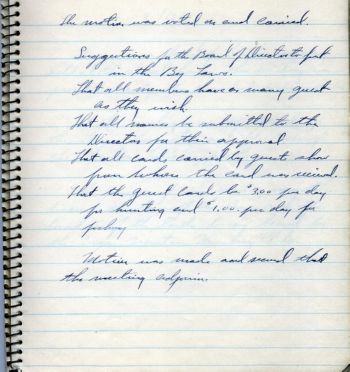 The motion was voted on and carried.
Suggestions for the Board of Directors to put
in the By Laws.
That all members have as many guest
as they wish.
That all names be submitted to the
Directors for their approval
That all cards carried by guest show
from whom the card was received.
That the guest cards be $3.00 per day
for hunting and $1.00. per day for
fishing
Motion was made and second that
the meeting adjourn.